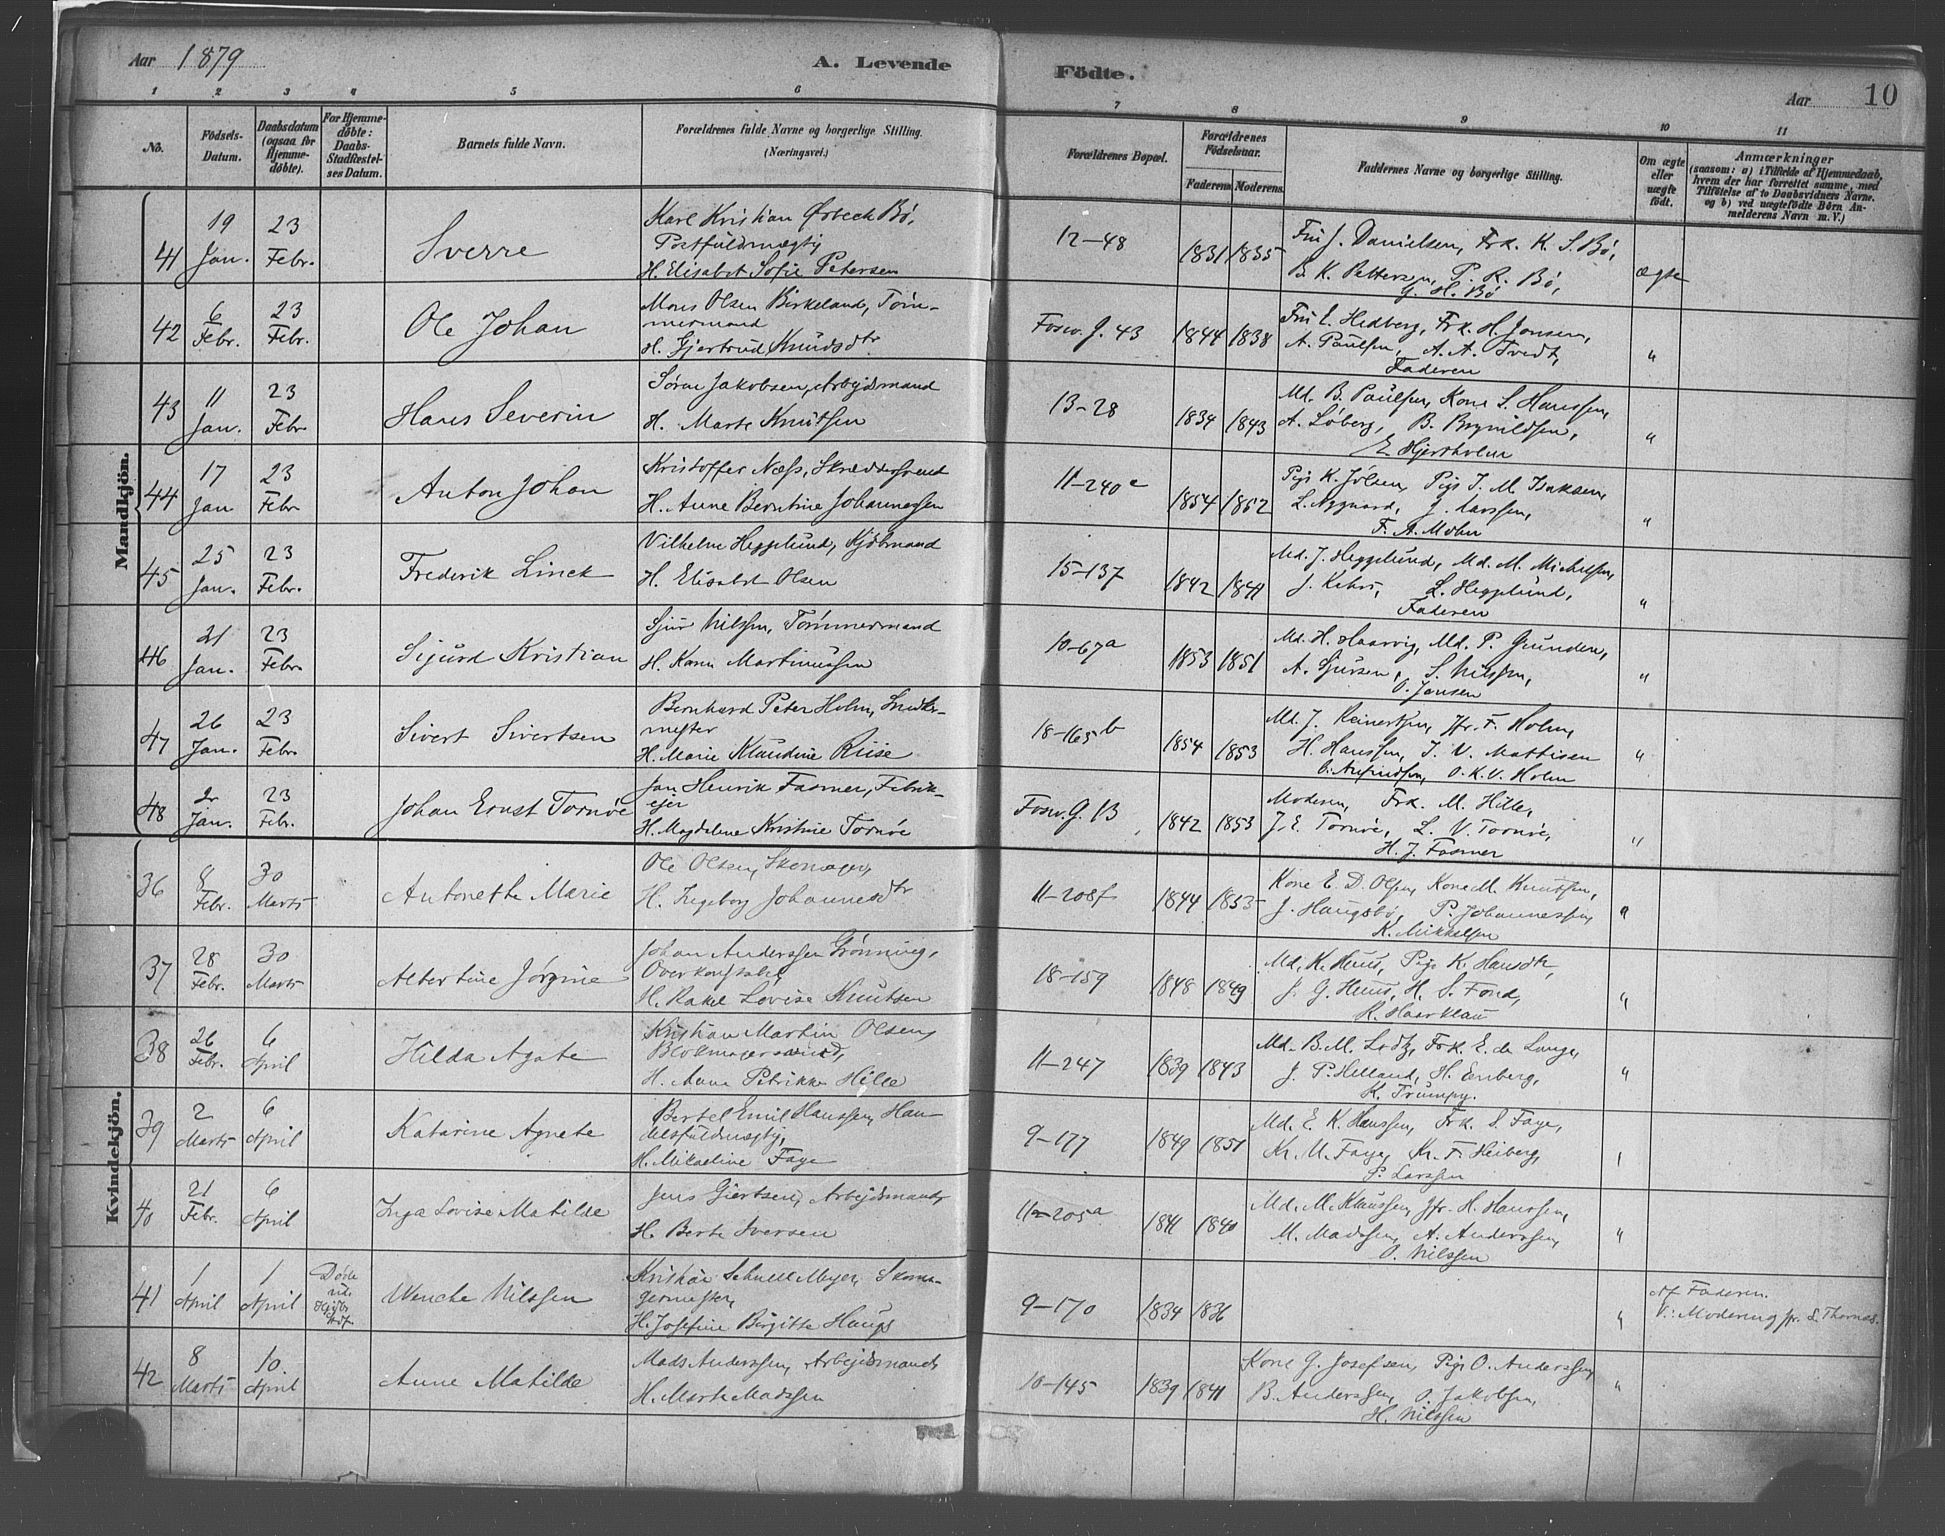 Aar 1879
A. Levende
Födte.
Aar
10
1 2 3 4 5 6 7 8 9 10 11
No.
Födsels-Datum.
Daabsdatum (ogsaa for Hjemmedøbte).
For Hjemmedøbte: Daabs-Stadfæstelses Datum.
Barnets fulde Navn.
Forældrenes fulde Navne og borgerlige Stilling. (Næringsvei.)
Forældrenes Bopæl.
Forældrenes Födselsaar.
Faderens Moderens
Faddernes Navne og borgerlige Stilling.
Om ægte eller uægte født.
Anmærkninger
(saasom: a) i Tilfælde af Hjemmedaab, hvem der har forrettet samme, med Tilföielse af to Daabsvidners Navne. og b) ved uægtefödte Börn Anmelderens Navn m. V.)
Mandkjön.
41 19 Jan. 23 Febr. Sverre
Karl Kristian Ørbech Bø,
Postfuldmægtig
H. Elisabet Sofie Petersen
12-48 1831 1835
Fru J. Danielsen, Frk. K. S. Bø,
B. K. Pettersen, P. R. Bø,
G. H. Bø
ægte
42 6 Febr. 23 Febr. Ole Johan
Mons Olsen Birkeland, Tøm-
mermand
H. Gjertrud Knudsdtr
Fosw. G. 43 1844 1838
Fru E. Hedberg, Frk. H. Jonsen,
A. Paulsen, A. A. Tvedt,
Faderen
"
43 11 Jan. 23 Febr Hans Severin
Søren Jakobsen, Arbejdsmand
H. Marte Knutsen
13-28 1834 1843
Md. B. Paulsen, Kone S. Hanssen,
A. Løberg, B. Brynildsen,
E. Hjertholm
"
44 17 Jan 23 Febr Anton Johan
Kristoffer Næss, Skræddersvend
H. Anne Berntine Johannessen
11-240e 1854 1852
Pige K. Jølsen, Pige J. M. Isaksen,
L. Nygaard, J. Larssen,
F. A. Mohn
"
45 25 Jan. 23 Febr. Frederik Linck
Vilhelm Hegglund, Kjøbmand
H. Elisabet Olsen
15-137 1842 1841
Md. J. Hegglund, Md. M. Michelsen,
J. Kahrs, L. Hegglund,
Faderen
"
46 21 Jan. 23 Febr. Sigurd Kristian
Sjur Nilssen, Tømmermand
H. Karen Martinussen
10-67a 1853 1851
Md. H. Haarvig, Md. P. Grunden,
A. Sjursen, S. Nilssen,
O. Jansen
"
47 26 Jan. 23 Febr. Sivert Sivertsen
Bernhard Peter Holm, Snedker-
mester
H. Marie Klaudine Riise
18-165b 1854 1853
Md. J. Reinertsen, Jfr. F. Holm,
H. Hanssen, J. V. Mattisen
O. Arfindsen, O. K. V. Holm
"
48 2 Jan. 23 Febr. Johan Ernst Tornøe
Jan Henrik Fasmer, Fabrik-
ejer
H. Magdalene Kristine Tornøe
Fosw. G. 13 1842 1853
Moderen, Frk. M. Hille,
J. E. Tornøe, L. V. Tornøe,
H. J. Fasmer
"
Kvindekjön.
36 8 Febr. 30 Marts Antonette Marie
Ole Olsen, Skomager,
H. Ingeborg Johannesdtr
11-208f 1844 1853
Kone E. D. Olsen, Kone M. Knutsen,
J. Haugsbø, P. Johannessen,
K. Mikkelsen
"
37 28 Febr. 30 Marts Albertine Jørgine
Johan Anderssen Grønning,
Overkonstabel,
H. Rakel Lovise Knutsen
18-159 1848 1849
Md. K. Huus, Pige K. Hansdtr,
J. G. Huus, H. S. Fond,
R. Haarklau
"
38 26 Febr. 6 April Hilda Agate
Kristian Martin Olsen,
Blokmagersvend,
H. Anna Petrikke Hille
11-247 1839 1843
Md. B. M. Lodtz, Frk. E. de Lange,
J. P. Helland, H. Enberg,
K. Trumpy.
"
39 2 Marts 6 April Katarine Agnete
Bertel Emil Hanssen, Han-
delsfuldmægtig,
H. Mikaeline Faye
9-177 1849 1851
Md. E. K. Hanssen, Frk. S. Faye,
Kr. M. Faye, Kr. F. Heiberg,
S. Larssen
"
40 21 Febr. 6 April Inga Lovise Matilde
Jens Giertsen, Arbejdsmand,
H. Berte Iversen
11-205a 1841 1840
Md. M. Klaussen, Jfr. H. Hanssen,
M. Madssen, A. Anderssen,
O. Nilssen
"
41 1 April 1 April Døde ud. Kirkens Stdf. Wenche Nilssen
Kristian Schnell Meyer, Skoma-
germester,
H. Josefine Birgitte Haugs
9-170 1834 1836
"
Af Faderen.
V: Moderen og Jfr. S. Thomas.
42 8 Marts 10 April Anne Matilde
Mads Anderssen, Arbejdsmand,
H. Marte Madssen
10-145 1839 1841
Kone G. Josefsen, Pige O. Anderssen,
B. Anderssen, O. Jakobsen,
H. Nilssen
"